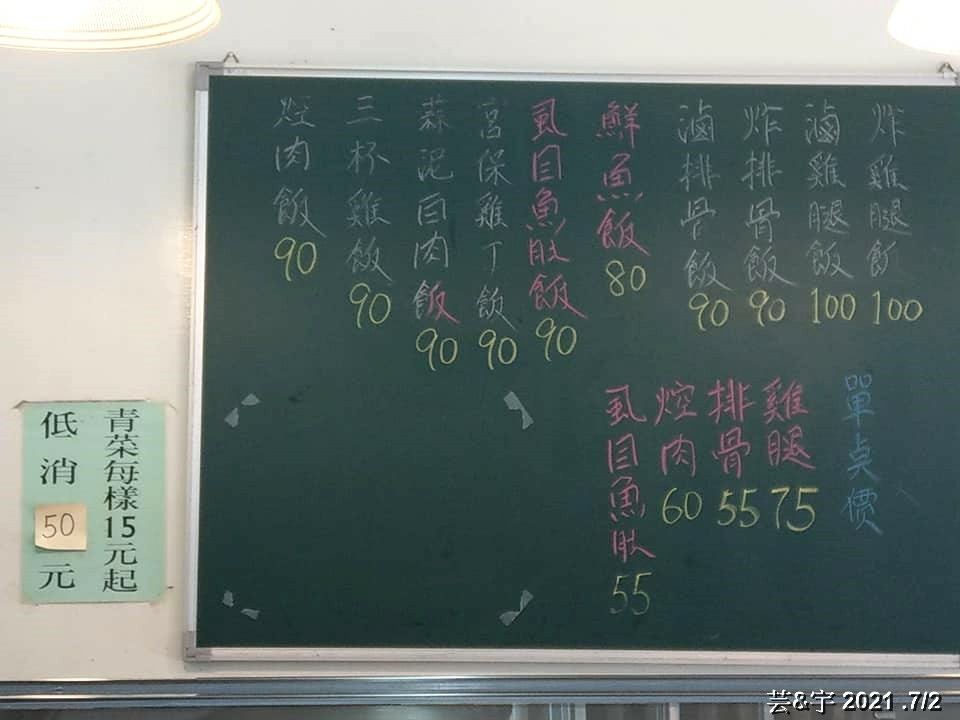 炸雞腿飯100
滷雞腿飯100
炸排骨飯90
滷排骨飯90
鮮魚飯80
虱目魚肚飯90
宮保雞丁飯90
蒜泥白肉飯90
三杯雞飯90
焢肉飯90
單点價
雞腿75
排骨55
焢肉60
虱目魚肚55
青菜每樣15元起
低消50元
芸&宇 2021 .7/2